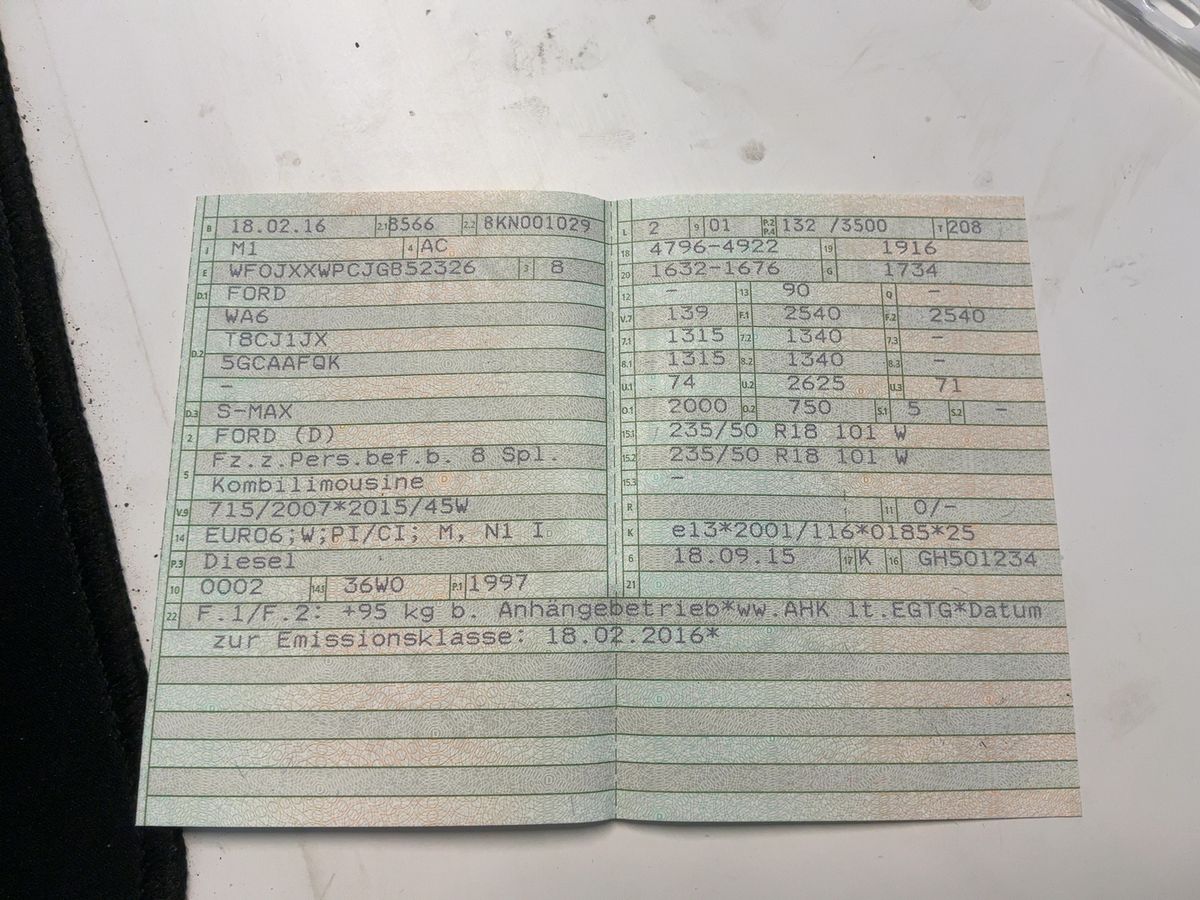 B 18.02.16 2.1 8566 2.2 8KN001029
J M1 4 AC
E WF0JXXWPCJGB52326 3 8
D.1 FORD
WA6
D.2 T8CJ1JX
5GCAAFQK
-
D.3 S-MAX
2 FORD (D)
5 Fz.z.Pers.bef.b. 8 Spl.
Kombilimousine
V.9 715/2007*2015/45W
14 EURO6;W;PI/CI; M, N1 I
P.3 Diesel
10 0002 14.1 36W0 P.1 1997
L 2 9 01 P.2 P.4 132 /3500 T 208
18 4796-4922 19 1916
20 1632-1676 G 1734
12 - 13 90 Q -
V.7 139 F.1 2540 F.2 2540
7.1 1315 7.2 1340 7.3 -
8.1 1315 8.2 1340 8.3 -
U.1 74 U.2 2625 U.3 71
O.1 2000 O.2 750 S.1 5 S.2 -
15.1 235/50 R18 101 W
15.2 235/50 R18 101 W
15.3 -
R 11 0/-
K e13*2001/116*0185*25
6 18.09.15 17 K 16 GH501234
21
22 F.1/F.2: +95 kg b. Anhängebetrieb*ww.AHK lt.EGTG*Datum
zur Emissionsklasse: 18.02.2016*